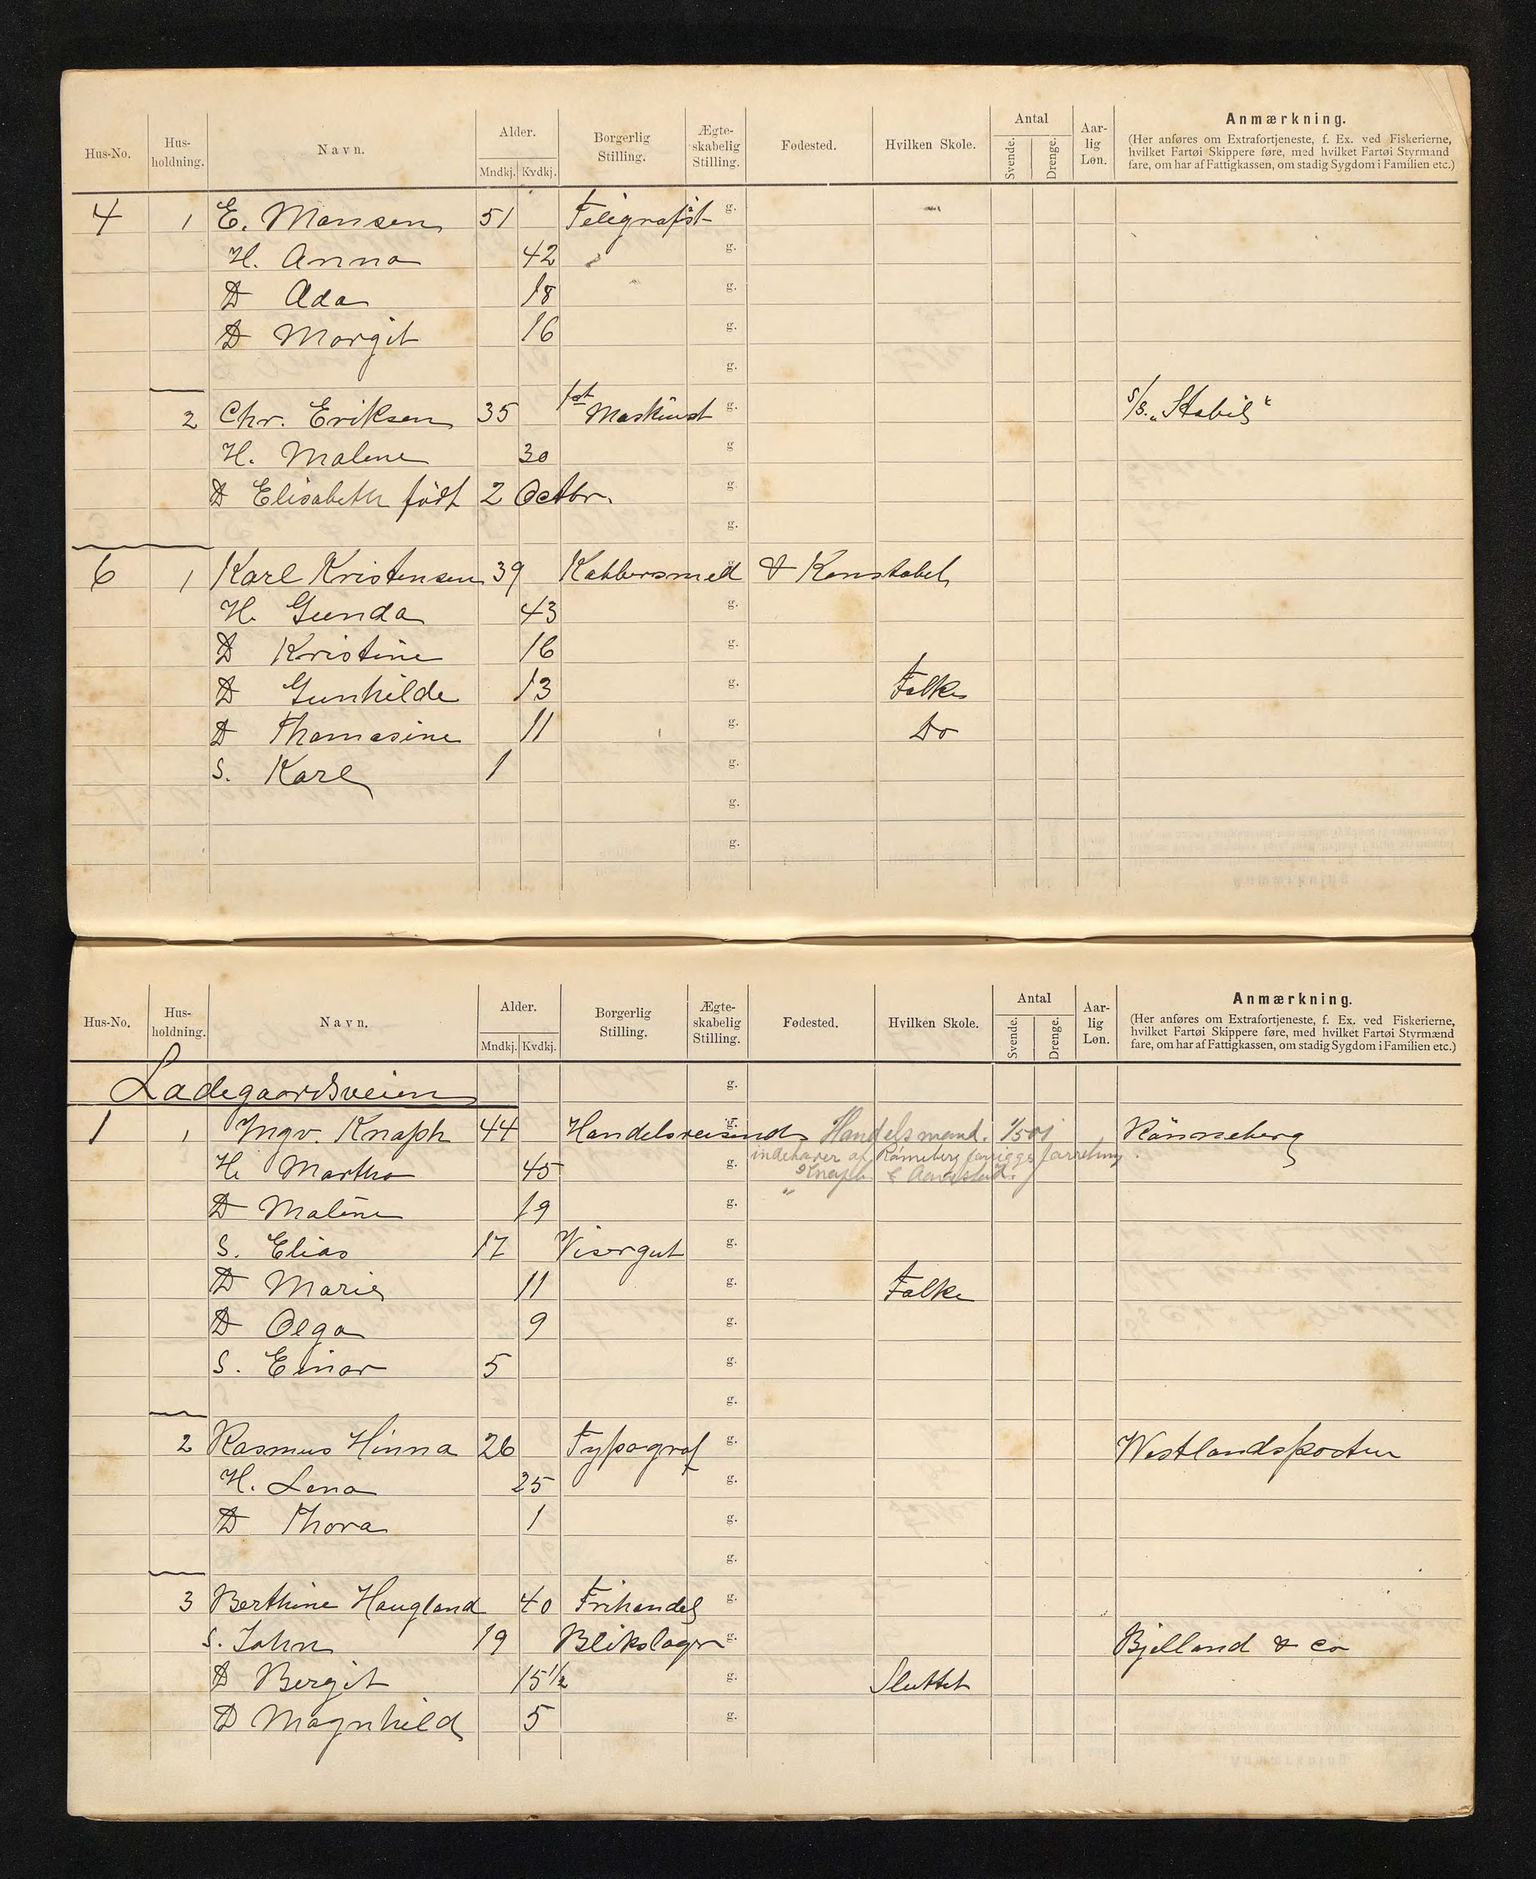 Hus-No. Hus-holdning. Navn. Alder. Mndkj. Kvdkj. Borgerlig Stilling. Ægte-skabelig Stilling. Fødested. Hvilken Skole. Antal Svende. Drenge. Aar-lig Løn. Anmærkning.
(Her anføres om Extrafortjeneste, f. Ex. ved Fiskerierne,
hvilket Fartøi Skippere føre, med hvilket Fartøi Styrmænd
fare, om har af Fattigkassen, om stadig Sygdom i Familien etc.)
4 1 E. Monsen 51 Telegrafist g.
H. Anna 42 g.
D Ada 18 g.
D Margit 16 g.
g.
2 Chr. Eriksen 35 1st Maskinist g. S/S. „Stabil“
H. Malene 30 g
D Elisabeth født 2 Octbr. g.
g.
6 1 Karl Kristensen 39 Kobbersmed & Konstabel
H. Gunda 43 g.
D Kristine 16 g.
D Gunhilde 13 g. Folke
D Thomasine 11 g. Do
S. Karl 1 g.
g.
g.
Hus-No. Hus-holdning. Navn. Alder. Mndkj. Kvdkj. Borgerlig Stilling. Ægte-skabelig Stilling. Fødested. Hvilken Skole. Antal Svende. Drenge. Aar-lig Løn. Anmærkning.
(Her anføres om Extrafortjeneste, f. Ex. ved Fiskerierne,
hvilket Fartøi Skippere føre, med hvilket Fartøi Styrmænd
fare, om har af Fattigkassen, om stadig Sygdom i Familien etc.)
Ladegaardsveien g.
1 1 Ingv. Knaph 44 Handelsreisende g. Handelsmand. Rönneberg
indehaver af Rönneberg forretning
H. Martha 45 g. Knaph &
D Maline 19 g.
S. Elias 17 Visergut g.
D Marie 11 g. Folke
D Olga 9 g.
S. Einar 5 g.
g.
2 Rasmus Hinna 26 Typograf g. Westlandsposten
H. Lena 25 g.
D Thora 1 g.
g.
3 Berthine Haugland 40 Frihandel g.
S. John 19 Blikslager g. Bjelland & Co
D Bergit 15 1/2 g. Sluttet
D Magnhild 5 g.